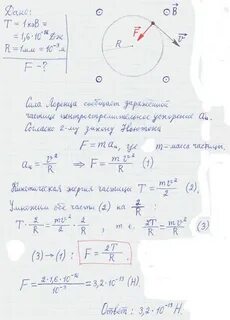 Дано:
T = 1 кэВ =
= 1,6·10⁻¹⁶ Дж
R = 1 мм = 10⁻³ м
F - ?
B⃗
R
F⃗
v⃗
Сила Лоренца сообщает заряженной
частице центростремительное ускорение aₙ.
Согласно 2-му закону Ньютона
F = maₙ, где m - масса частицы.
aₙ = v²/R ⇒ F = mv²/R (1)
Кинетическая энергия частицы T = mv²/2 (2).
Умножим обе части (2) на 2/R:
T · 2/R = mv²/2 · 2/R, т.е. 2T/R = mv²/R (3)
(3)→(1): F = 2T/R
F = 2·1,6·10⁻¹⁶/10⁻³ = 3,2·10⁻¹³ Н.
Ответ: 3,2·10⁻¹³ Н.